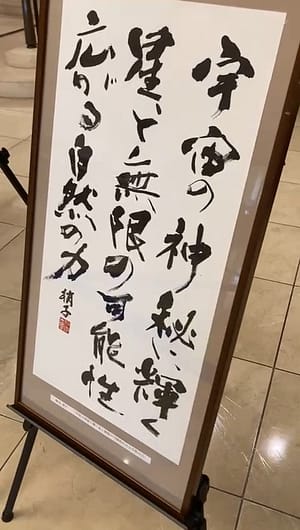 宇宙の神秘に輝く
星々と無限の可能性
広がる自然の力